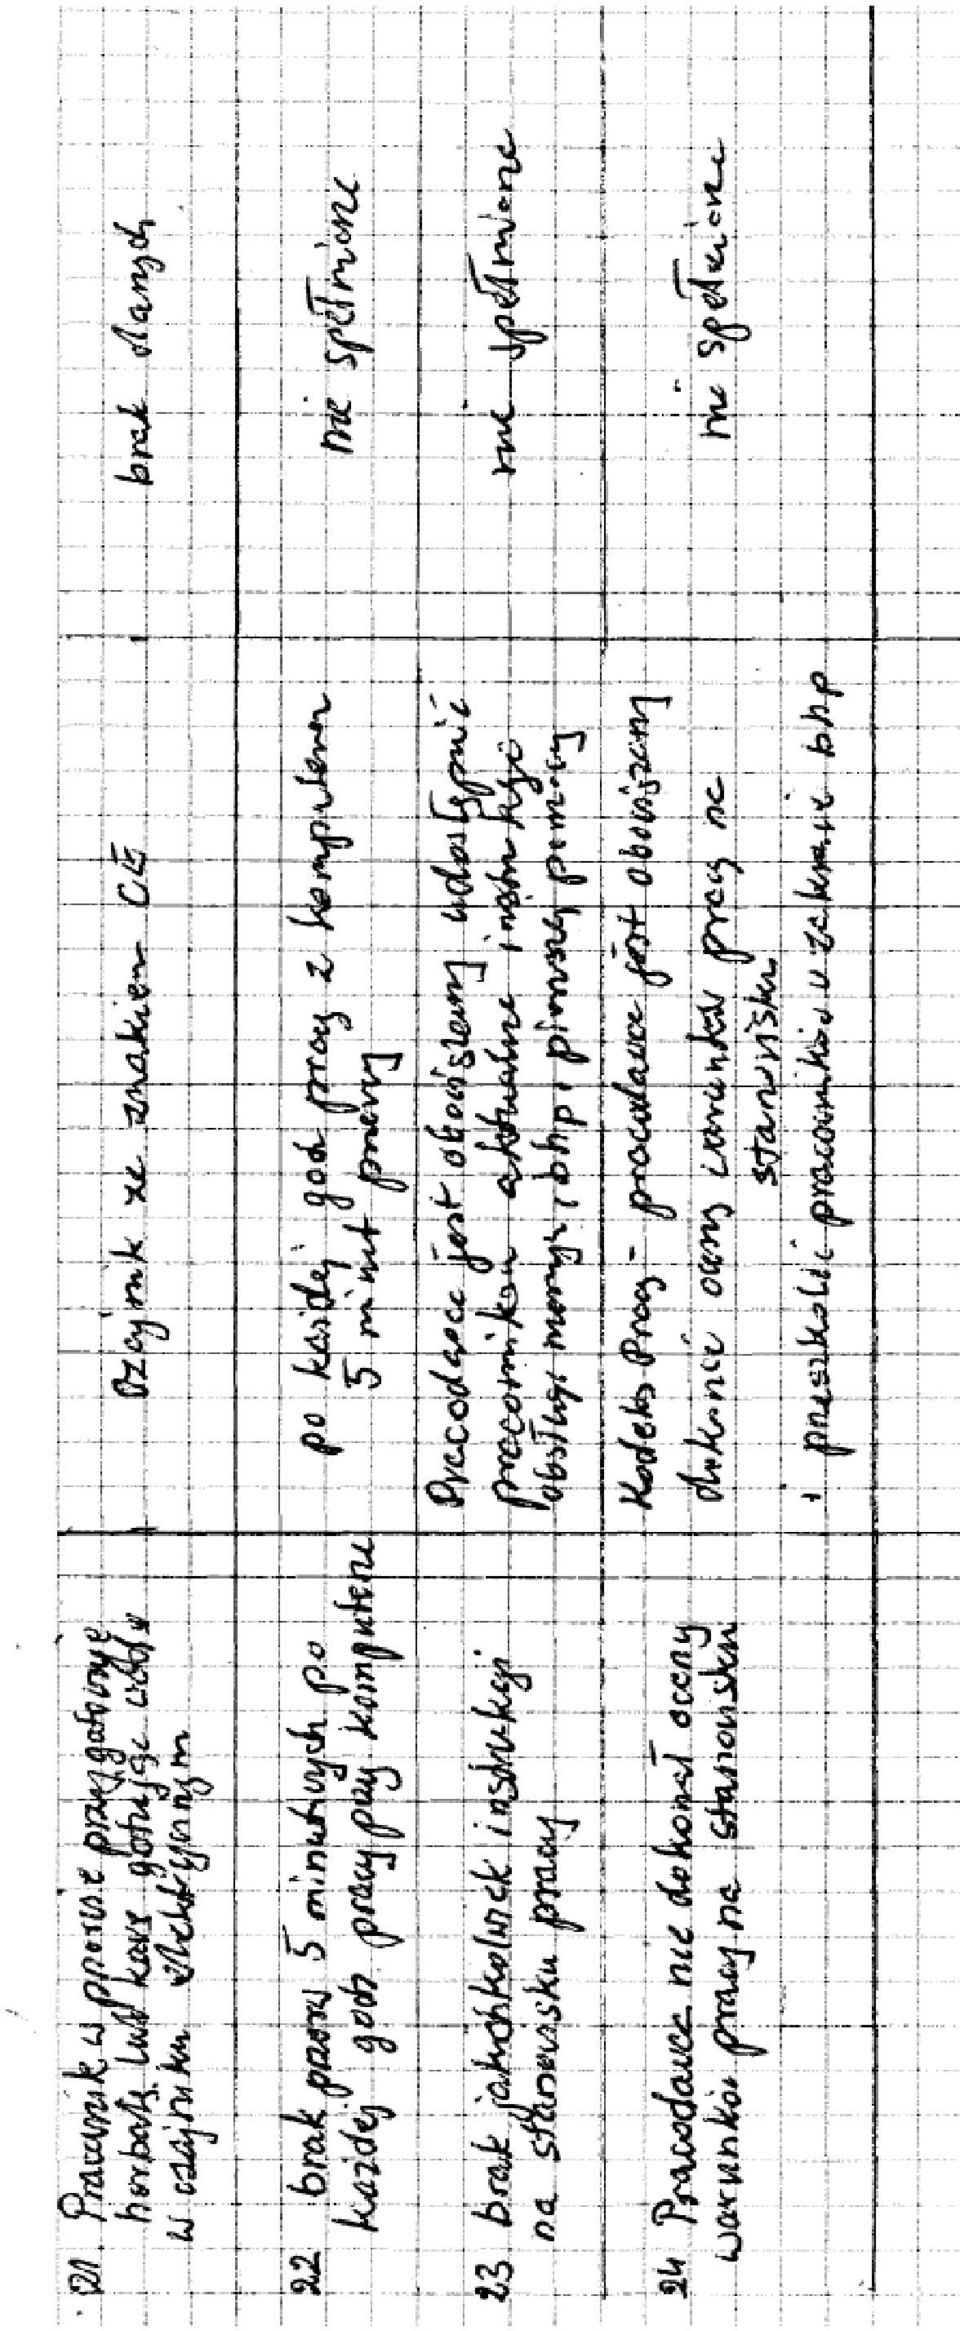 21 Pracownik w pporse przygotowuje
herbatę lub kawę gotując wodę
w czajniku elektrycznym
Czajnik ze znakiem CE
brak danych
22 brak przerw 5 minutowych po
każdej godz pracy przy komputerze
po każdej godz pracy z komputerem
5 minut przerwy
nie spełnione
23 brak jakichkolwiek instrukcji
na stanowisku pracy
Pracodawca jest obowiązany udostępnić
pracownikom aktualne instrukcje
obsługi maszyn, bhp i pierwszej pomocy
nie spełnione
24 Pracodawca nie dokonał oceny
warunków pracy na stanowisku
Kodeks Pracy - pracodawca jest obowiązany
dokonać oceny warunków pracy na
stanowisku
i przeszkolić pracowników w zakresie bhp
nie spełnione